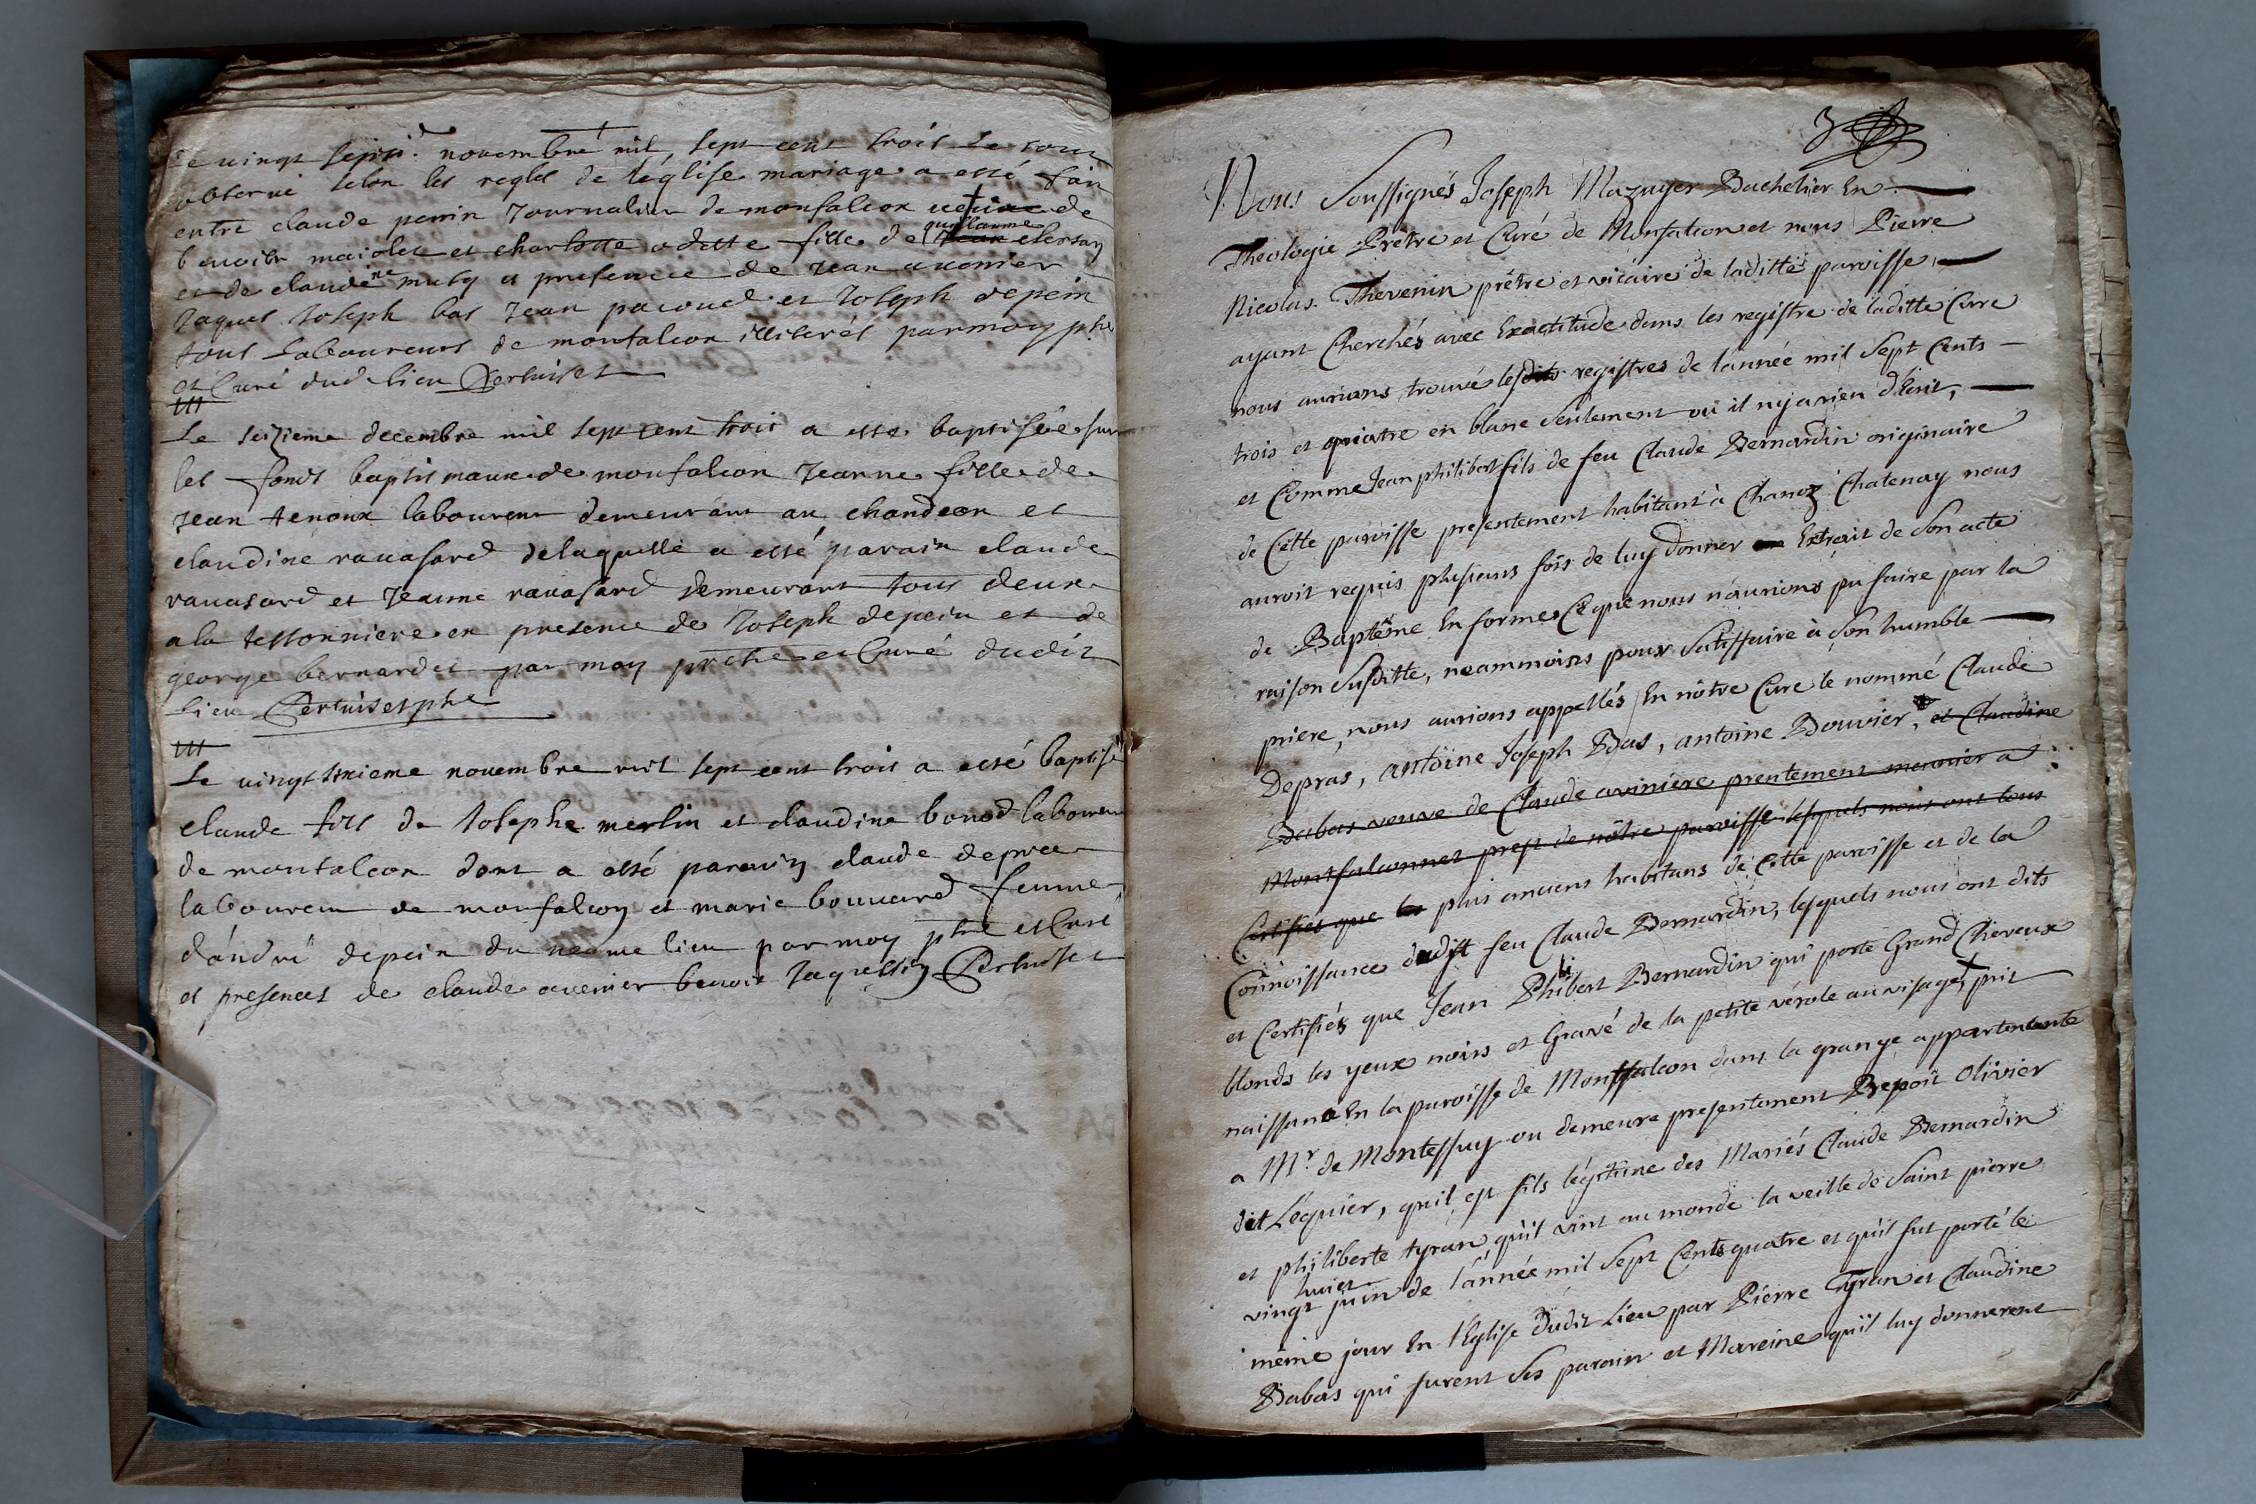 Le vingt septi.e novembre mil sept cent trois le tout
observé selon les regles de l'église mariage a esté fait
entre claude perrin Journalier de monfalcon de
benoite maiolet et charlotte fille de guillaume clersay
et de claudine muty et presence de Jean auonier
Jaques Joseph bas Jean pacoud et Joseph depein
tous Laboureurs de montfalcon illiterés par moy ptre
et Curé dud lieu Pertuiset
Le seizieme decembre mil sept cent trois a esté baptisée sur
les fonds baptismaux de monfalcon Jeanne fille de
Jean tenoux laboureur demeurant au chandeon et
claudine rauasard de laquelle a esté parain claude
rauasard et Jeanne rauasard demeurant tous deux
a la tessonniere en presence de Joseph depein et de
george bernardet par moy prêtre et Curé dudit
lieu Pertuiset ptre
Le vingt sixieme novembre mil sept cent trois a esté baptisé
claude fils de Josephe merlin et claudine bonod laboureur
de montfalcon dont a esté parain claude depra
laboureur de monfalcon et marie bouuard femme
d'andré depein du mesme lieu par moy ptre et Curé
et presences de claude auenier benoit Jaquessin Pertuiset
3
Nous Soussignés Joseph Mazuyer Bachelier En
Theologie Prêtre et Curé de Monfalcon et nous Pierre
Nicolas Thevenin prêtre et vicaire de laditte paroisse,
ayant Cherchés avec Exactitude dans les registre de laditte Cure
nous aurions trouvé lesdits registres de l'année mil Sept Cents
trois et quatre en blanc Seulement ou il ny a rien d'Ecrit,
et Comme Jean philibert fils de feu Claude Bernardin originaire
de Cette paroisse presentement habitant à Chanoz Chatenay nous
auroit requis plusieurs fois de luy donner Extrait de Son acte
de Baptême En forme, Ce que nous n'aurions pu faire par la
raison Susditte, neammoins pour Satisfaire à Son humble
priere, nous aurions appellés En nôtre Cure le nommé Claude
Depras, antoine Joseph Bas, antoine Bouvier, et Claudine
Babas veuve de Claude aviniere prentement meunier a
Montfalconnet prest de nôtre paroisse lesquels nous ont tous
Certifiés que les plus anciens habitans de Cette paroisse et de la
Connoissance dudit feu Claude Bernardin, lesquels nous ont dits
et Certifiés que Jean Philibert Bernardin qui porte Grand Cheveux
blonds les yeux noirs et Gravé de la petite vérole au visage, prit
naissance En la paroisse de Montfalcon dans la grange appartenante
a Mr. de Montessuy ou demeure presentement Benoit Olivier
dit Lequier, qu'il est fils légitime des Mariés Claude Bernardin
et philiberte tyran qu'il vint au monde la veille de Saint pierre
vingt huict juin de l'année mil Sept Cents quatre et qu'il fut porté le
même jour En l'Eglise dudit Lieu par Pierre Tyran et Claudine
Babas qui furent Ses parain et Mareine qu'il luy donnerent